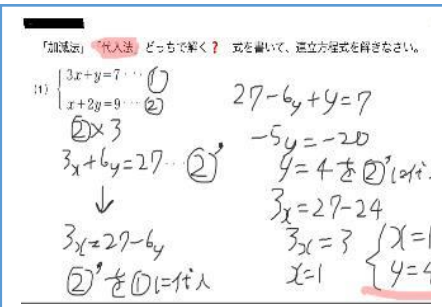 「加減法」「代入法」どっちで解く？ 式を書いて、連立方程式を解きなさい。
(1) { 3x+y=7…①
x+2y=9…②
②×3
3x+6y=27…②'
↓
3x=27-6y
②'を①に代入
27-6y+y=7
-5y=-20
y=4を②'に代
3x=27-24
3x=3
x=1
{ x=1
y=4